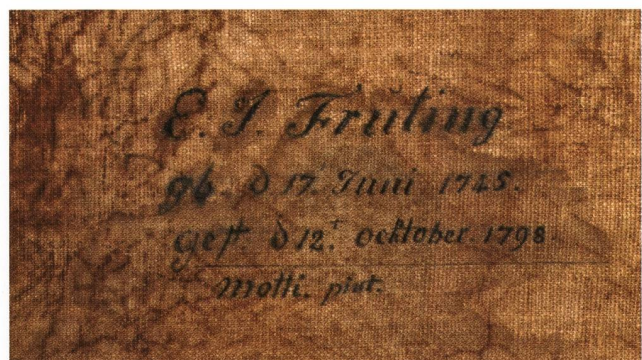 E. J. Fruting
gb. d 17 Juni 1745.
gest d 12.t ocktober. 1798.
Motti. pint.